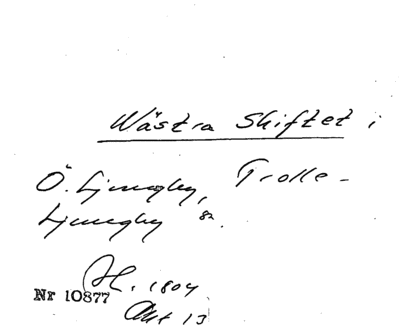 Wästra Skiftet i
Ö. Ljungby, Trolle-
Ljungby
1804
Nr 10877
Akt 13